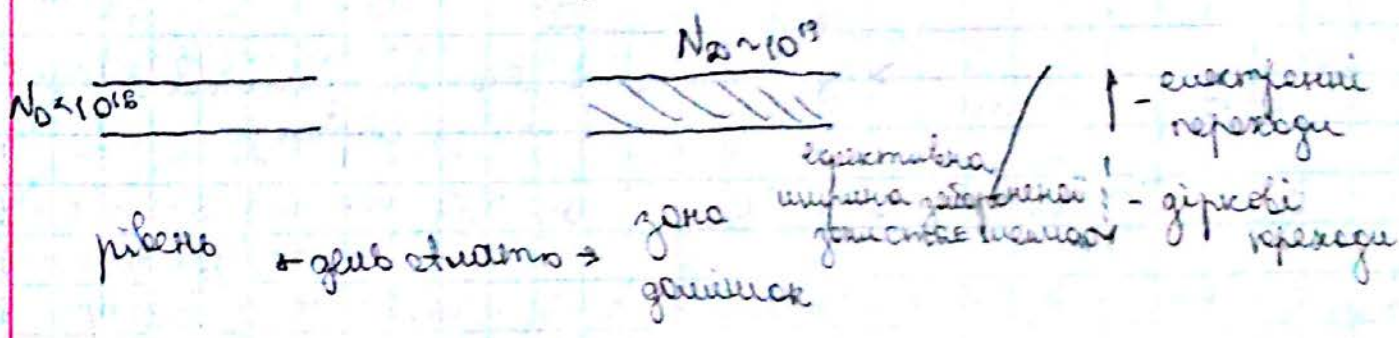 N_D ~ 10^19
N_D < 10^18
- електронні
переходи
ефективна
ширина забороненої
зони стає меншою
- діркові
переходи
рівень
зона
домішок